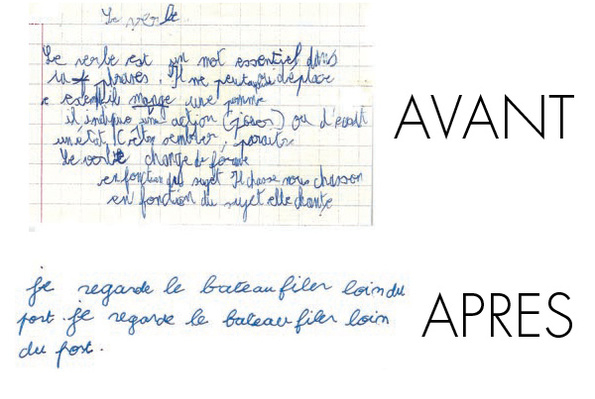 Le verbe
Le verbe est un mot essentiel dans
la phrases. Il ne peut être déplacé
e exemple il mange une pomme
il indique une action (jouer) ou d'écrit
un état (être sembler, paraître
Le verbe change de forme
en fonction du sujet Il chasse nous chasson
en fonction du sujet elle chante
AVANT
je regarde le bateau filer loin du
port. je regarde le bateau filer loin
du port.
APRES